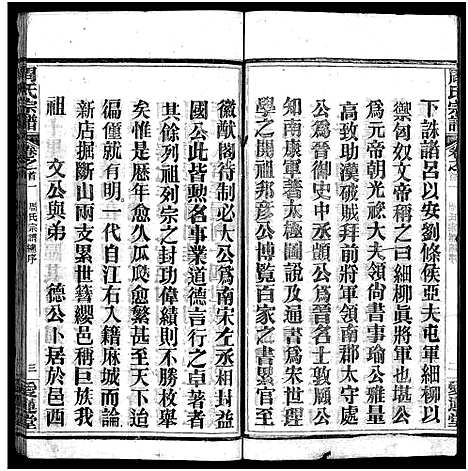 周氏宗譜
下誅諸呂以安劉條侯亞夫屯軍細柳以
禦匈奴文帝稱之曰細柳眞將軍也堪公
爲元帝朝光祿大夫領尚書事瑜公雅量
高致助漢破賊拜前將軍領南郡太守處
公爲晉御史中丞顗公爲晉名士敦頤公
知南康軍著太極圖說及通書爲宋世理
學之開祖邦彥公博覽百家之書累官至
徽猷閣待制必大公爲南宋左丞相封益
國公此皆勲名事業道德言行之卓著者
其餘列祖列宗之封功偉績則不勝枚舉
矣惟是歷年愈久瓜瓞愈繁甚至天下迨
徧僅就有明一代自江右入籍麻城而論
新店掘斷山兩支累世簪纓邑稱巨族我
祖 文公與弟 德公卜居於邑西
周氏宗譜 卷之首一 周氏宗譜總序 三 愛蓮堂